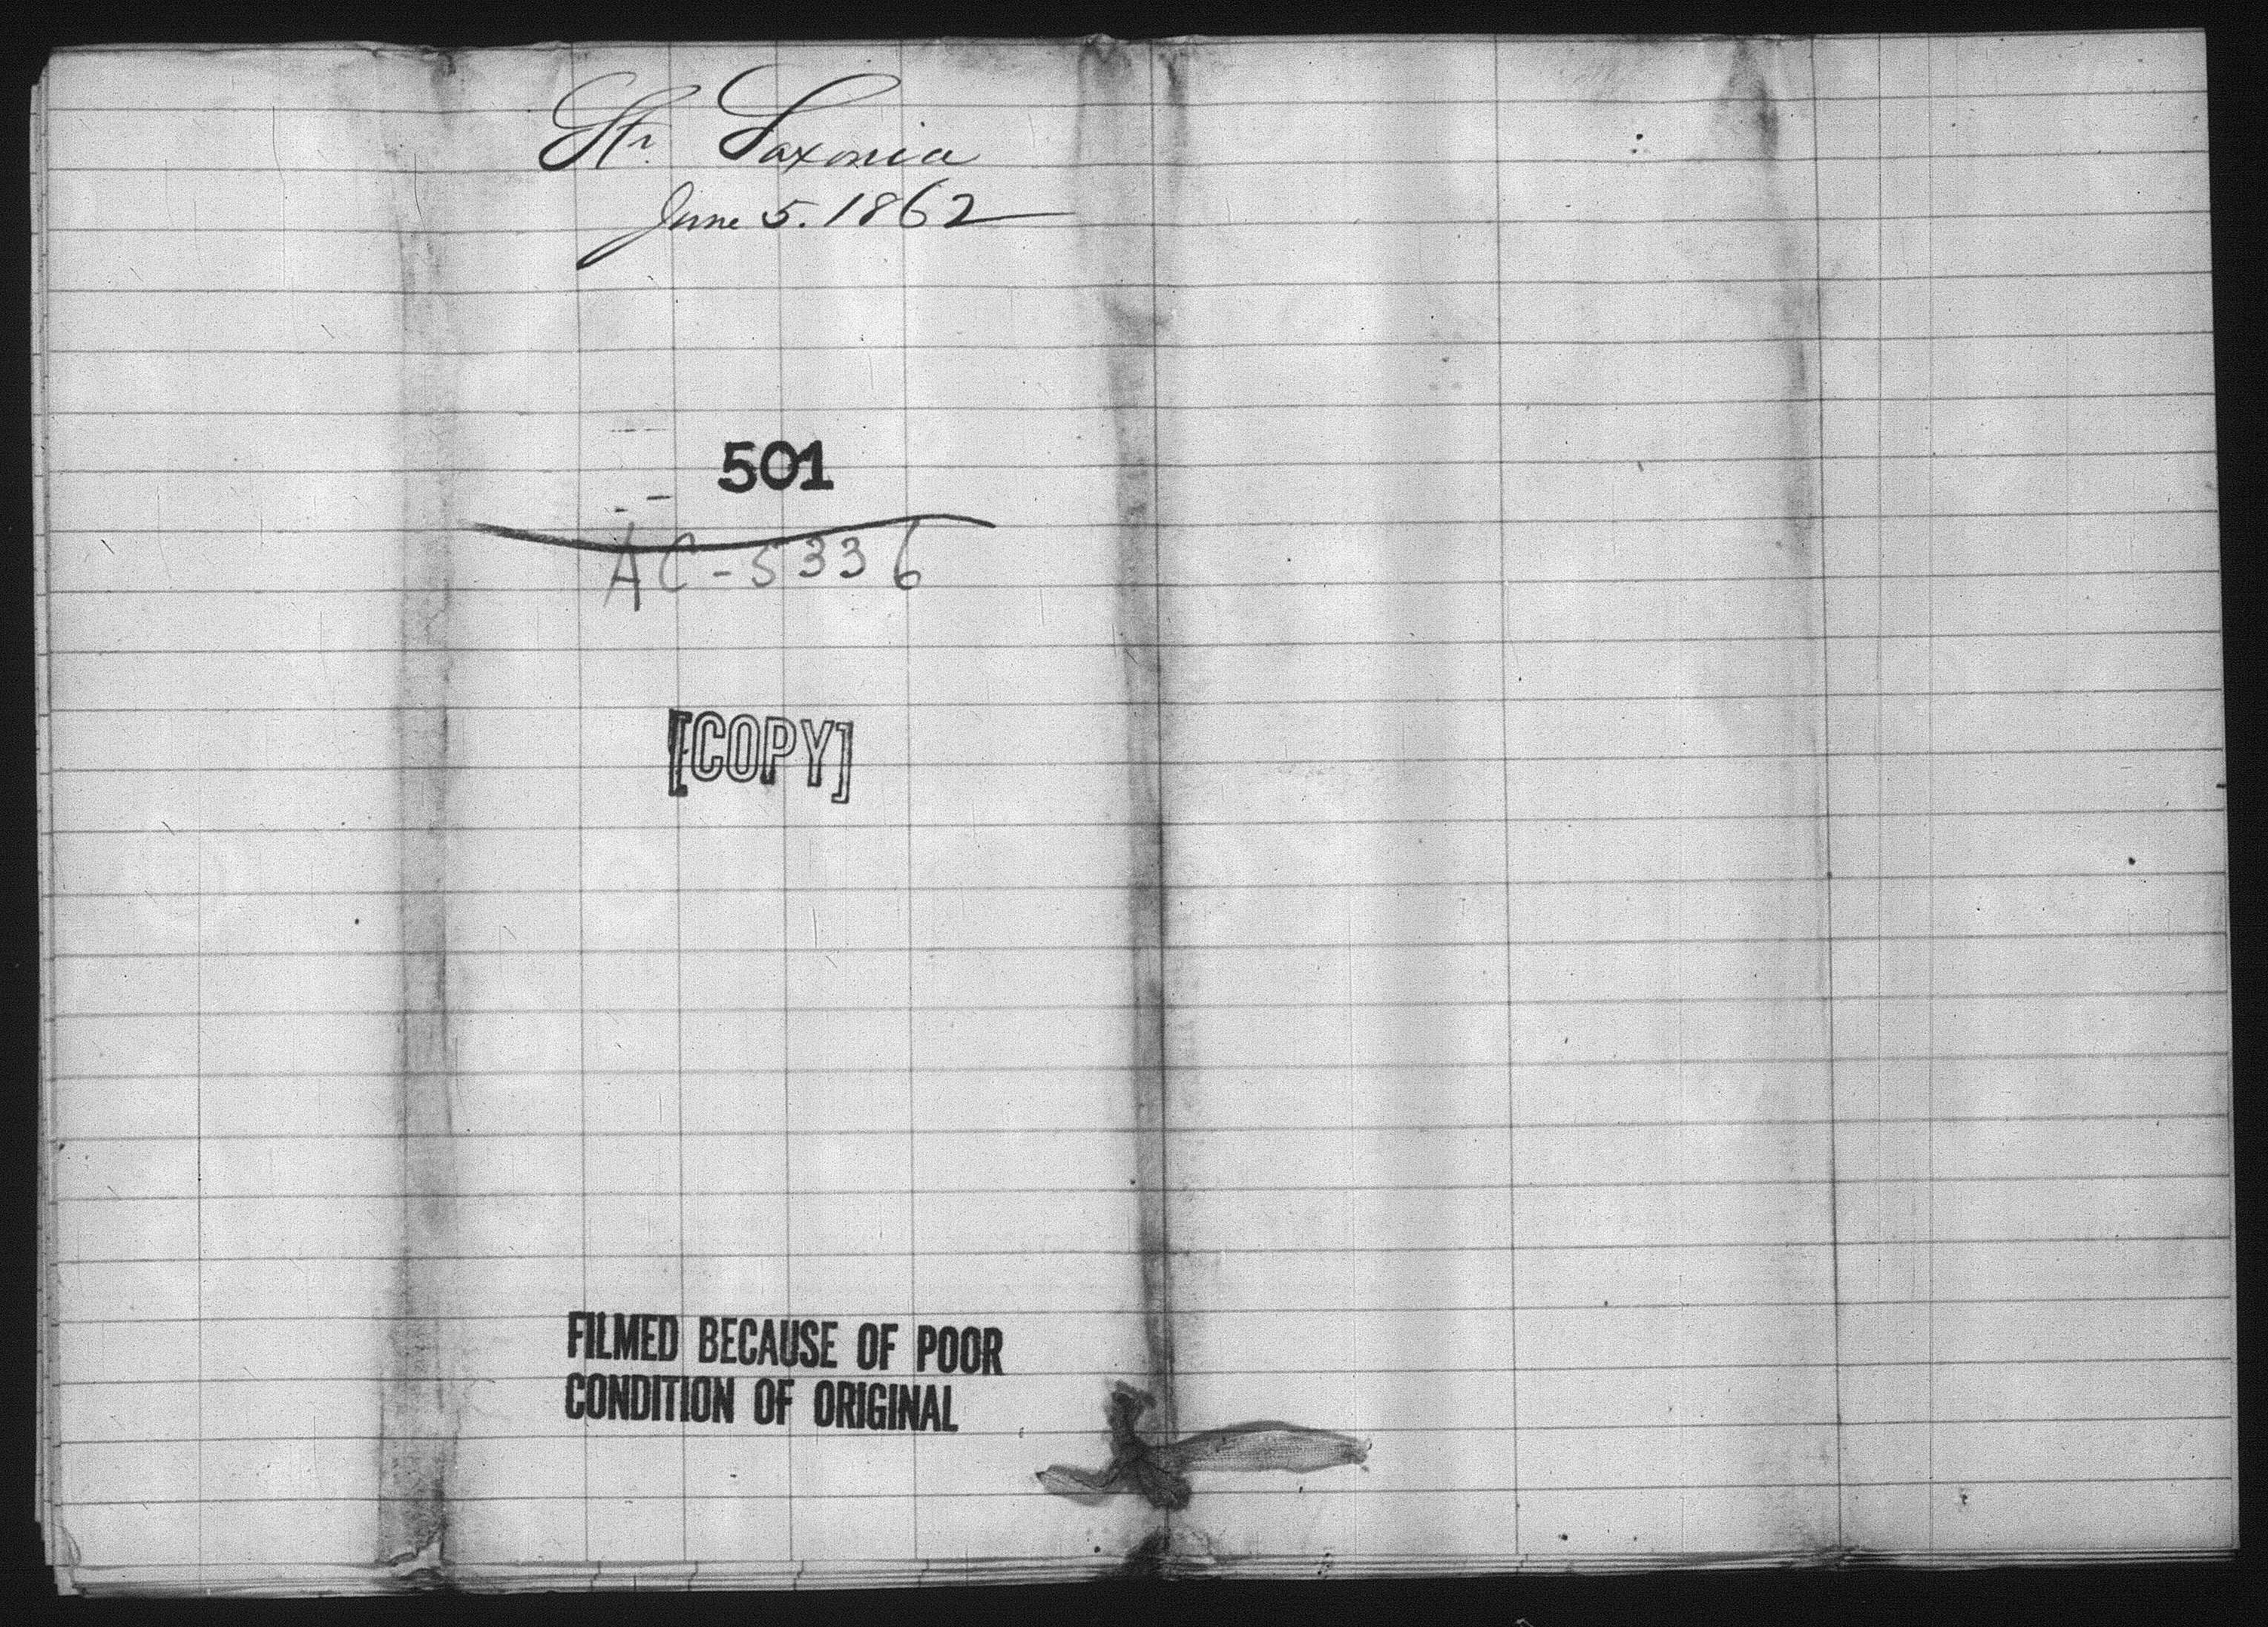 Str. Saxonia
June 5. 1862
501
AC-5336
[COPY]
FILMED BECAUSE OF POOR
CONDITION OF ORIGINAL